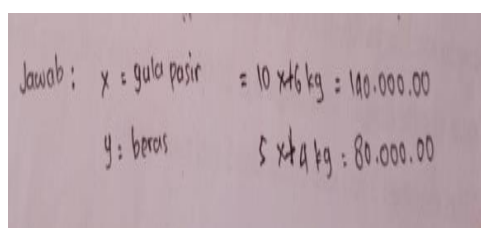 Jawab : x = gula pasir = 10 x+6 kg = 190.000.00
y : beras 5 x+4 kg : 80.000.00